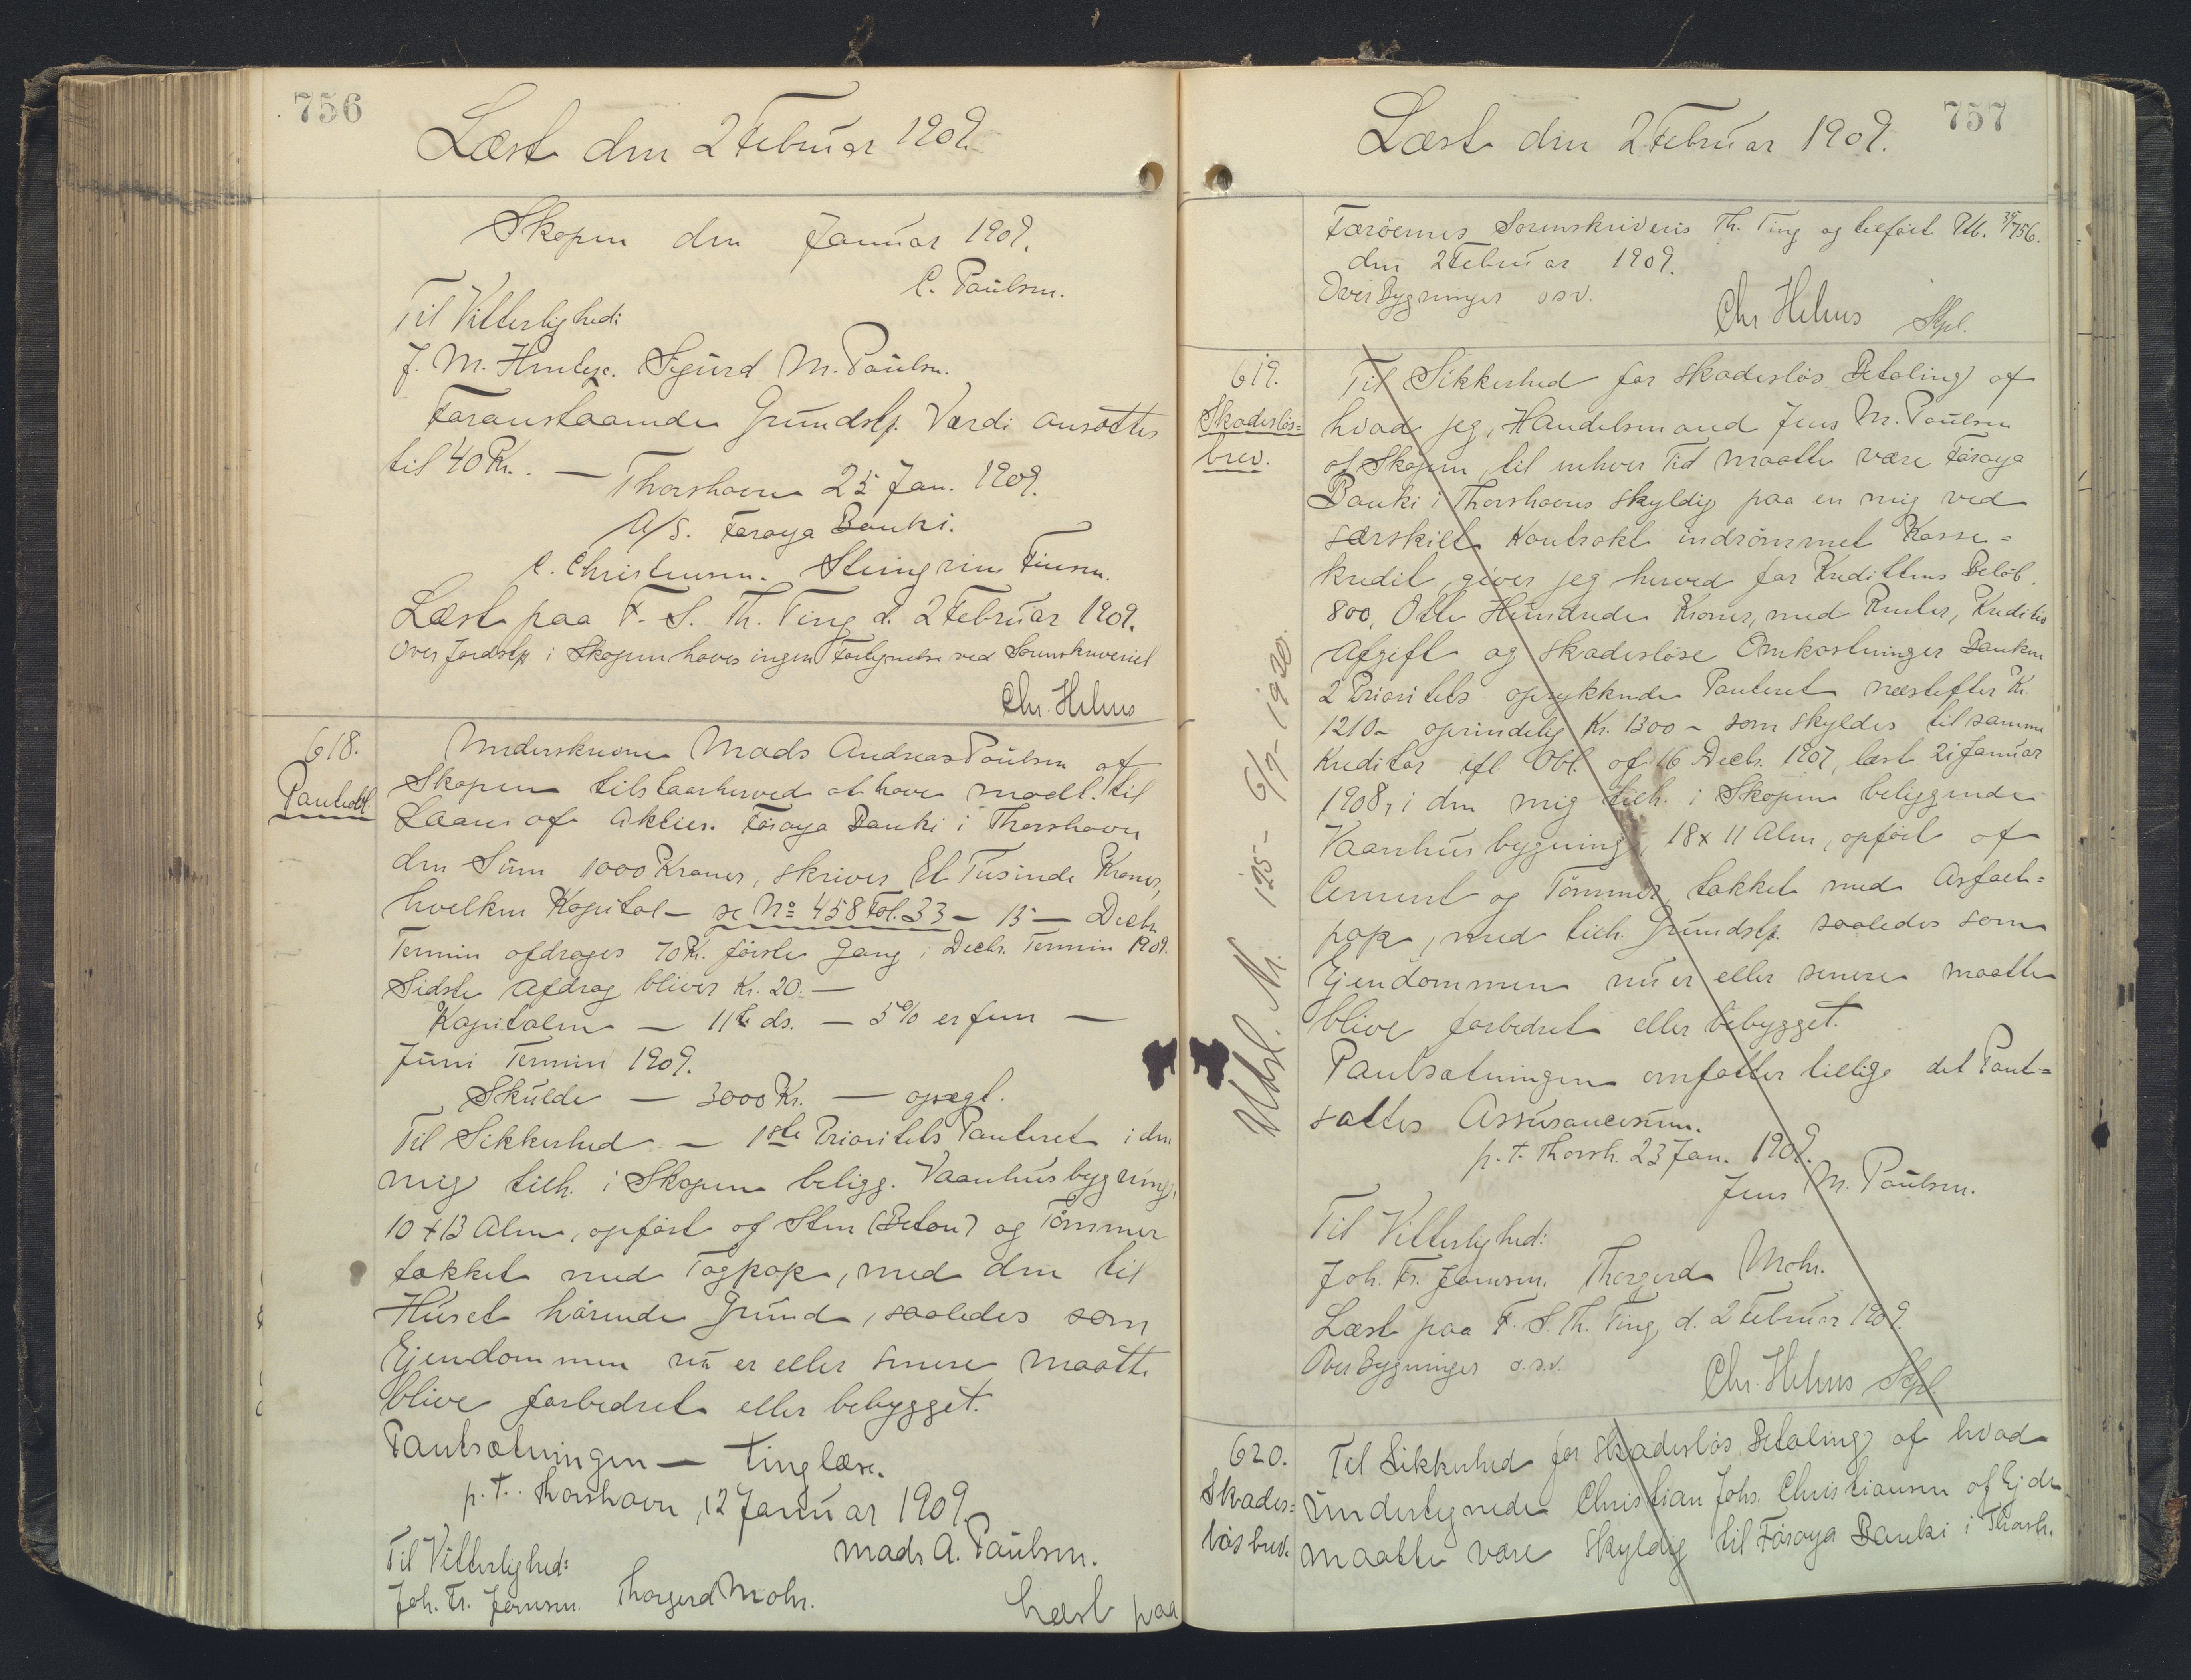 756
Læst den 2 Februar 1909.
Skopen den Januar 1909.
C. Paulsen.
Til Vitterlighed:
J. M. Hentze. Sigurd M. Paulsen.
Foranstaaende Grundstk. Værdi ansættes
til 40 Kr. — Thorshavn 25 Jan. 1909.
A/S. Føroya Banki.
C. Christensen. Steingrim Finsen.
Læst paa F. S. Th. Ting d. 2 Februar 1909.
Over Jordstk. i Skopen haves ingen Forbgnelse ved Sorenskriveriet
Chr. Helms
618.
Pantobl.
Underskrevne Mads Andreas Paulsen af
Skopen tilstaar herved at have modt. til
Laans af Akties. Føroya Banki i Thorshavn
den Sum 1000 Kroner, skriver Et Tusinde Kroner,
hvilken Kapital — se No 458 Fol. 33 — 15 — Decb.
Termin afdrages 70 Kr. første Gang i Decbr. Termin 1909.
Sidste Afdrag bliver Kr. 20. —
Kapitalen — 11te ds. — 5% er fem —
Juni Termin 1909.
Skulde — 3000 Kr. — opsagt.
Til Sikkerhed — 1ste Prioritets Panteret i den
mig tilh. i Skopen beligg. Vaanhusbygning,
10 x 13 Alen, opført af Sten (Beton) og Tømmer
takket med Tagpap, med den til
Huset hørende Grund, saaledes som
Ejendommen nu er eller senere maatte
blive forbedret eller bebygget.
Pantsætningen — tinglæse.
p.t. Thorshavn, 12 Januar 1909.
Mads A. Paulsen.
Til Vitterlighed:
Joh. Fr. Joensen. Thorgerd Mohr.
Læst paa
757
Læst den 2 Februar 1909.
Færøernes Sorenskriveris Th. Ting og tilført Ptb. 39/756.
den 2 Februar 1909.
Over Bygninger osv.
Chr. Helms Kst.
619.
Skadesløs=
brev.
Til Sikkerhed for skadesløs Betaling af
hvad jeg, Handelsmand Jens M. Paulsen
af Skopen, til enhver Tid maatte være Føroya
Banki i Thorshavns skyldig paa en mig ved
særskilt Kontrakt indrømmet Kasse=
kredit, giver jeg herved for Kredittens Beløb
800, Otte Hundrede Kroner, med Renter, Kreditis
Afgift og skadesløse Omkostninger Banken
2 Prioritets oprykkende Panteret næstefter Kr.
1210 — oprindelig Kr. 1300 — som skyldes til samme
Kreditor ifl. Obl. af 16 Decbr. 1907, læst 21 Januar
1908, i den mig tilh. i Skopen beliggende
Vaanhusbygning, 18 x 11 Alen, opført af
Cement og Tømmer, takket med Asfalt=
pap, med tilh. Grundstk. saaledes som
Ejendommen nu er eller senere maatte
blive forbedret eller bebygget.
Pantsætningen omfatter tillige det Pant=
sattes Assurancesum.
p.t. Thorsh. 23 Jan. 1909.
Jens M. Paulsen.
Til Vitterlighed:
Joh. Fr. Joensen. Thorgerd Mohr.
Læst paa F. S. Th. Ting, d. 2 Februar 1909.
Over Bygninger o.s.v.
Chr. Helms Kst.
Udsl. Nr. 125 — 6/7 — 1920.
620.
Skades=
løsbrev.
Til Sikkerhed for skadesløs Betaling af hvad
undertegnede Christian Johs. Christiansen af Ejde
maatte være skyldig til Føroya Banki i Thorsh.